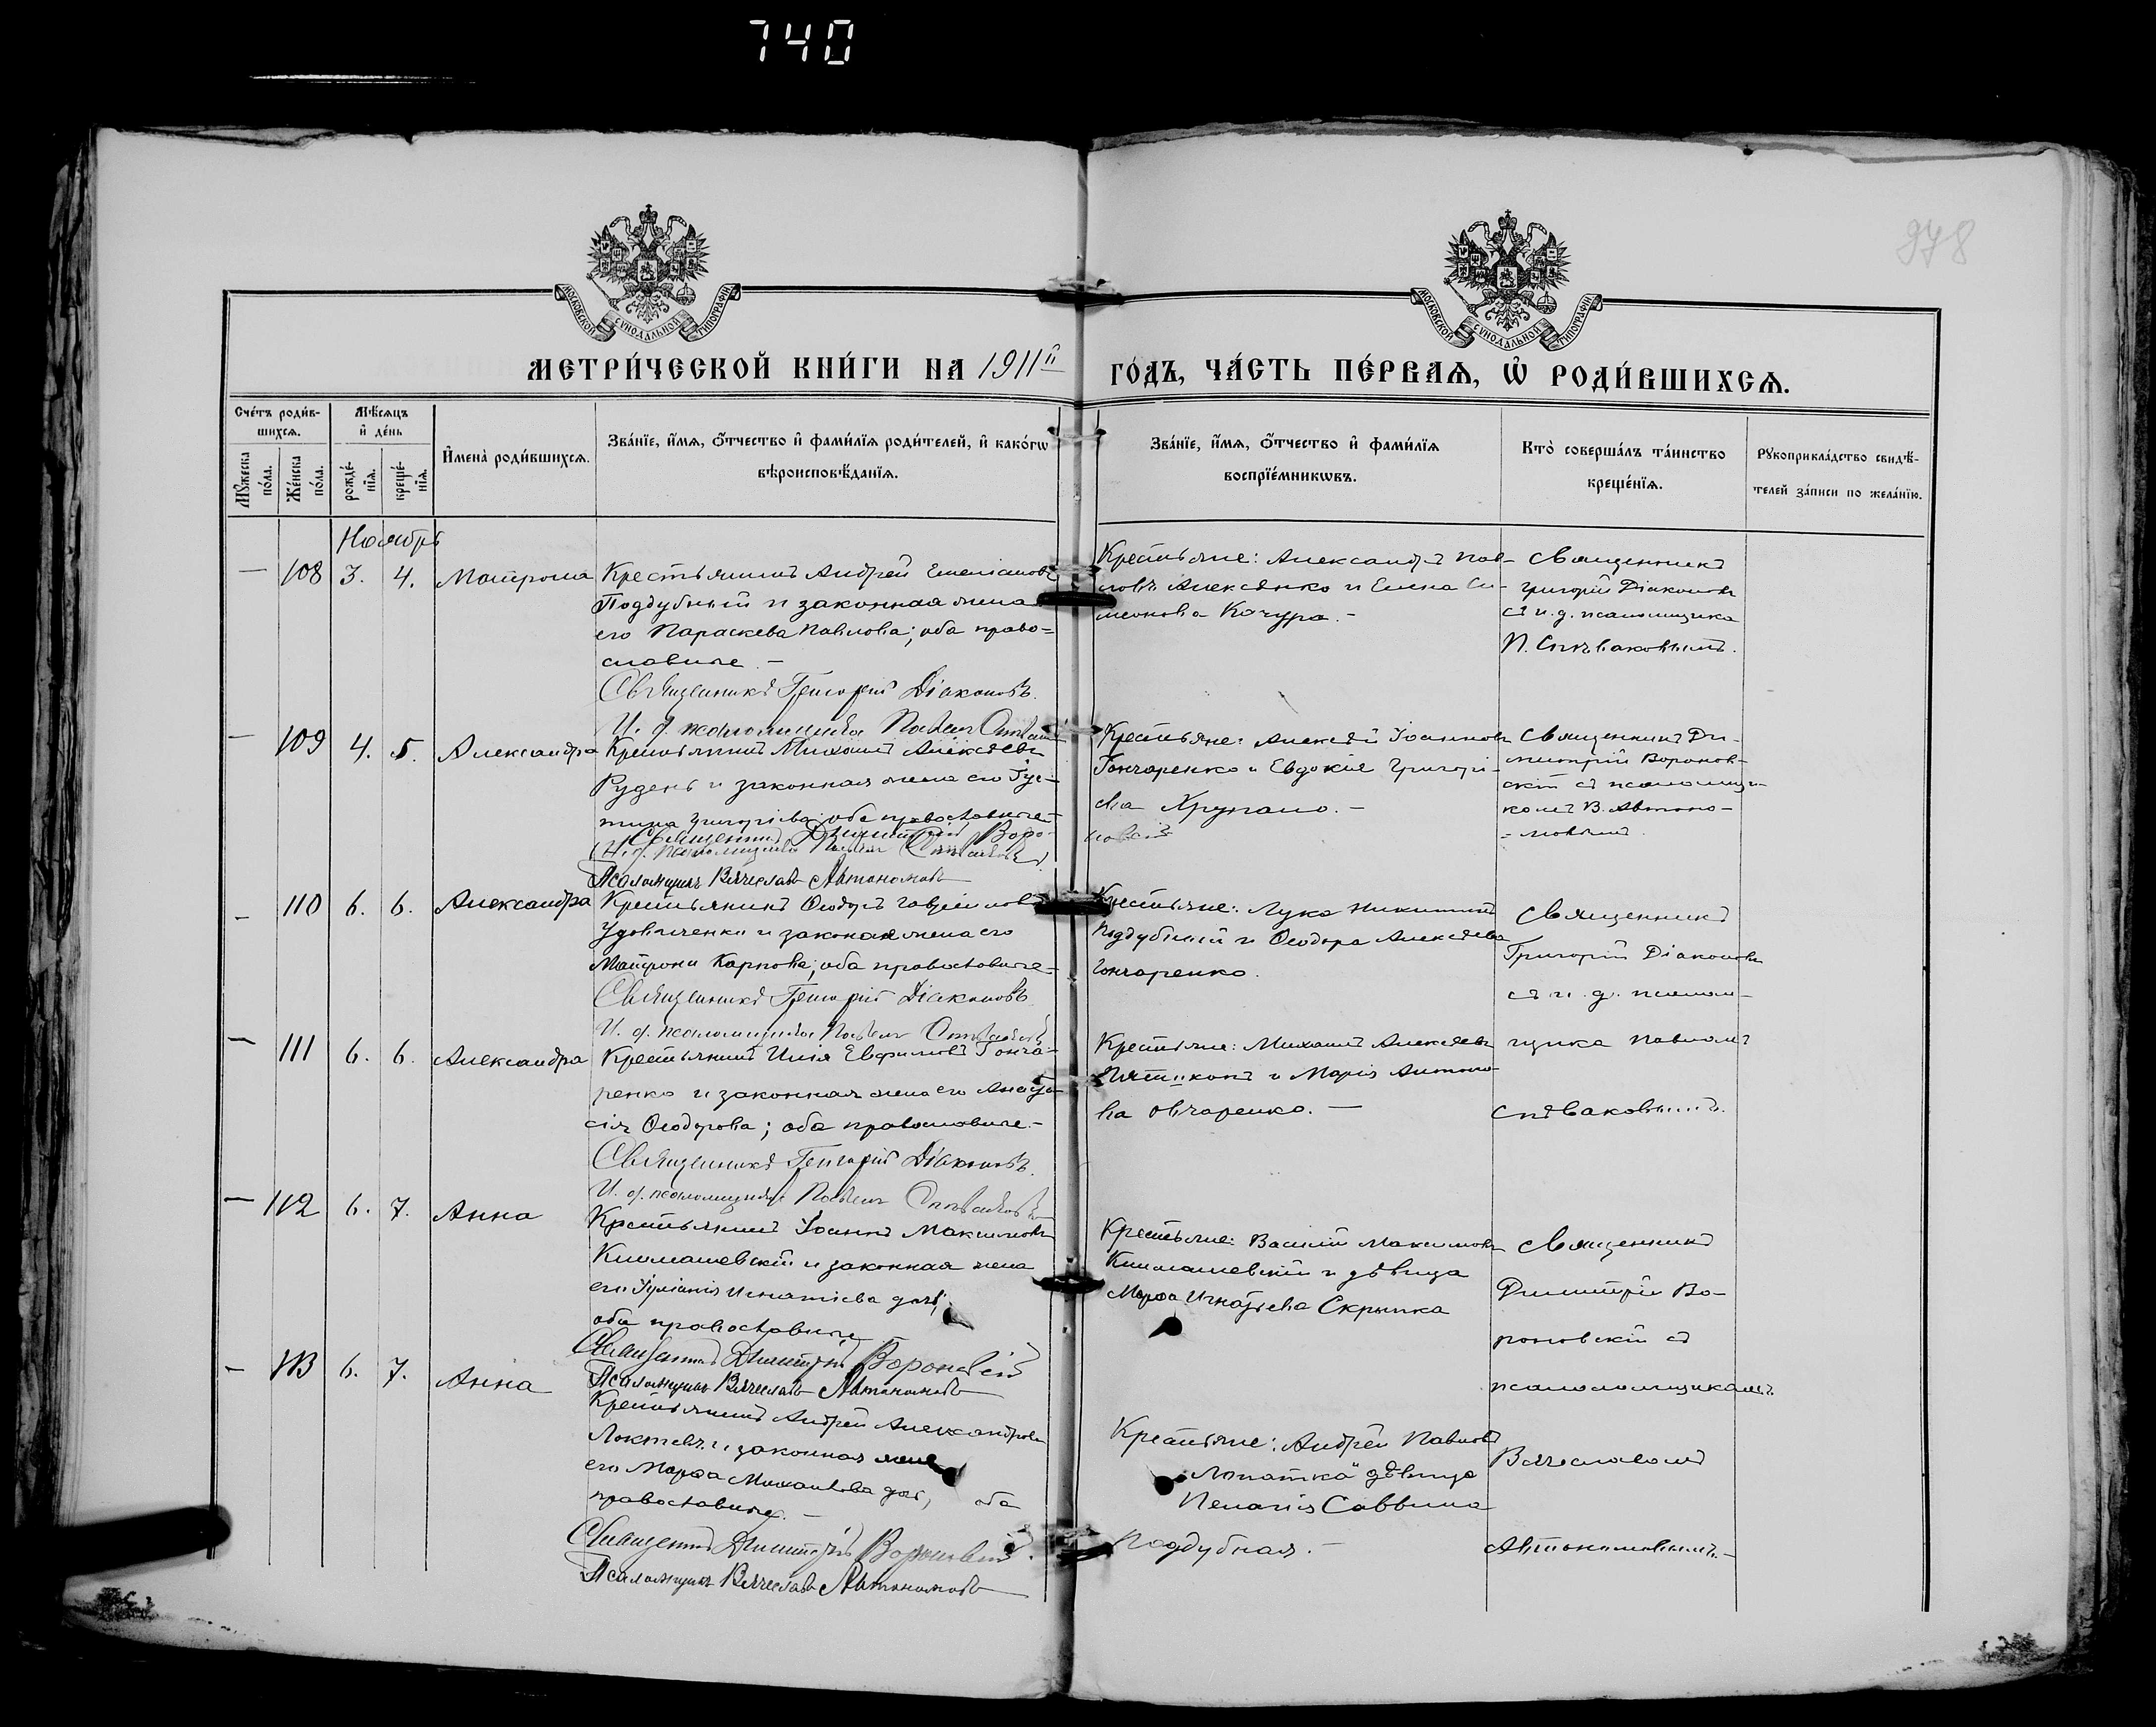 740
978
МОСКОВСКОЙ СѴНОДАЛЬНОЙ ТИПОГРАФІИ
МОСКОВСКОЙ СѴНОДАЛЬНОЙ ТИПОГРАФІИ
МЕТРИ́ЧЕСКОЙ КНИ́ГИ НА 1911й
ГО́ДЪ, ЧА́СТЬ ПЕ́РВАѦ, Ѡ҆ РОДИ́ВШИХСѦ.
Сче́тъ роди́в-
шихсѧ.
Мꙋ́жеска по́ла.
Же́нска по́ла.
Мѣ́сѧцъ
и҆ де́нь
рожде́-
нїѧ.
креще́-
нїѧ.
И҆мена̀ роди́вшихсѧ.
Зва́нїе, и҆́мѧ, ѻ҆́тчество и҆ фами́лїѧ роди́телей, и҆ како́гѡ
вѣроисповѣ́данїѧ.
Зва́нїе, и҆́мѧ, ѻ҆́тчество и҆ фами́лїѧ
воспрїе́мникѡвъ.
Кто̀ соверша́лъ та́инство
креще́нїѧ.
Рꙋкоприкла́дство свидѣ́-
телей за́писи по жела́нїю.
Ноябрь
— 108 3. 4. Матрона
Крестьянинъ Андрей Емеліановъ
Поддубный и законная жена
его Параскева Павлова; оба право=
славные. —
Священникъ Григорій Діаконовъ.
И. д. псаломщика Павелъ
Крестьяне: Александръ Пав-
ловъ Алексѣнко и Елена Си-
меонова Качура. —
Священникъ
Григорій Діаконовъ
съ и. д. псаломщика
П. Спѣваковымъ.
— 109 4. 5. Александра
Крестьянинъ Михаилъ Алексѣевъ
Рудень и законная жена его Іус-
тина Григоріева; оба православные
Священникъ Димитрій Воро-
новскій
И. д. псаломщика Павелъ Спѣваковъ
Псаломщикъ Вячеславъ Автономовъ
Крестьяне: Алексѣй Іоанновъ
Гончаренко и Евдокія Григорі-
ева Хрупало. —
Священникъ Ди-
митрій Воронов-
скій съ псаломщи-
комъ В. Автоно-
=мовымъ.
— 110 6. 6. Александра
Крестьянинъ Ѳеодулъ Гавріиловъ
Удовиченко и законная жена его
Матрона Карпова; оба православные—
Священникъ Григорій Діаконовъ
И. д. псаломщика Павелъ Спѣваковъ
Крестьяне: Лука Никитинъ
Поддубный и Ѳеодора Алексѣева
Гончаренко.
Священникъ
Григорій Діаконовъ
съ и. д. псалом-
щика Павломъ
Спѣваковымъ.
— 111 6. 6. Александра
Крестьянинъ Илія Евфимовъ Гонча-
ренко и законная жена его Анаста-
сія Ѳеодорова; оба православные.—
Священникъ Григорій Діаконовъ.
И. д. псаломщика Павелъ Спѣваковъ
Крестьяне: Михаилъ Алексѣевъ
и Марія Антоно-
ва Овчаренко. —
— 112 6. 7. Анна
Крестьянинъ Іоаннъ Максимовъ
Климашевскій и законная жена
его Іуліанія Игнатіева дочь;
оба православные
Священникъ Димитрій Вороновскій
Псаломщикъ Вячеславъ Автономовъ
Крестьяне: Василій Максимовъ
Климашевскій и дѣвица
Марѳа Игнатіева Скрыпка
Священникъ
Димитрій Во-
роновскій съ
псаломщикомъ
Вячеславомъ
Автономовымъ.—
— 113 6. 7. Анна
Крестьянинъ Андрей Александровъ
Локтевъ и законная жена
его Марѳа Михаилова дочь, оба
православные. —
Священникъ Димитрій Вороновскій.
Псаломщикъ Вячеславъ Автономовъ
Крестьяне: Андрей Павловъ
Лопатка дѣвица
Пелагія Саввина
Поддубная. —